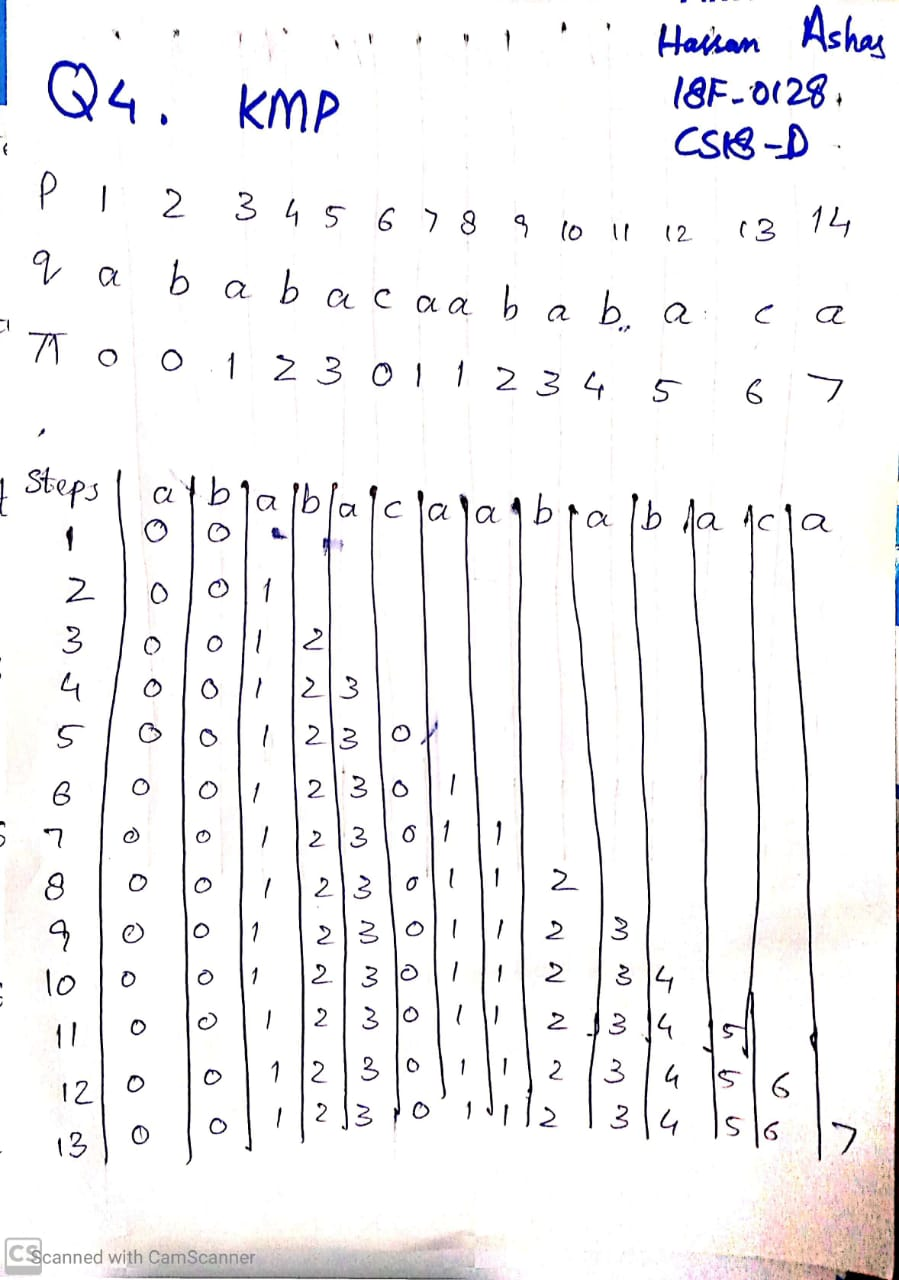 Hassan Ashas
18F-0128.
CS18-D
Q4. KMP
P 1 2 3 4 5 6 7 8 9 10 11 12 13 14
q a b a b a c a a b a b a c a
π 0 0 1 2 3 0 1 1 2 3 4 5 6 7
Steps a b a b a c a a b a b a c a
1 0 0
2 0 0 1
3 0 0 1 2
4 0 0 1 2 3
5 0 0 1 2 3 0
6 0 0 1 2 3 0 1
7 0 0 1 2 3 0 1 1
8 0 0 1 2 3 0 1 1 2
9 0 0 1 2 3 0 1 1 2 3
10 0 0 1 2 3 0 1 1 2 3 4
11 0 0 1 2 3 0 1 1 2 3 4 5
12 0 0 1 2 3 0 1 1 2 3 4 5 6
13 0 0 1 2 3 0 1 1 2 3 4 5 6 7
CS Scanned with CamScanner